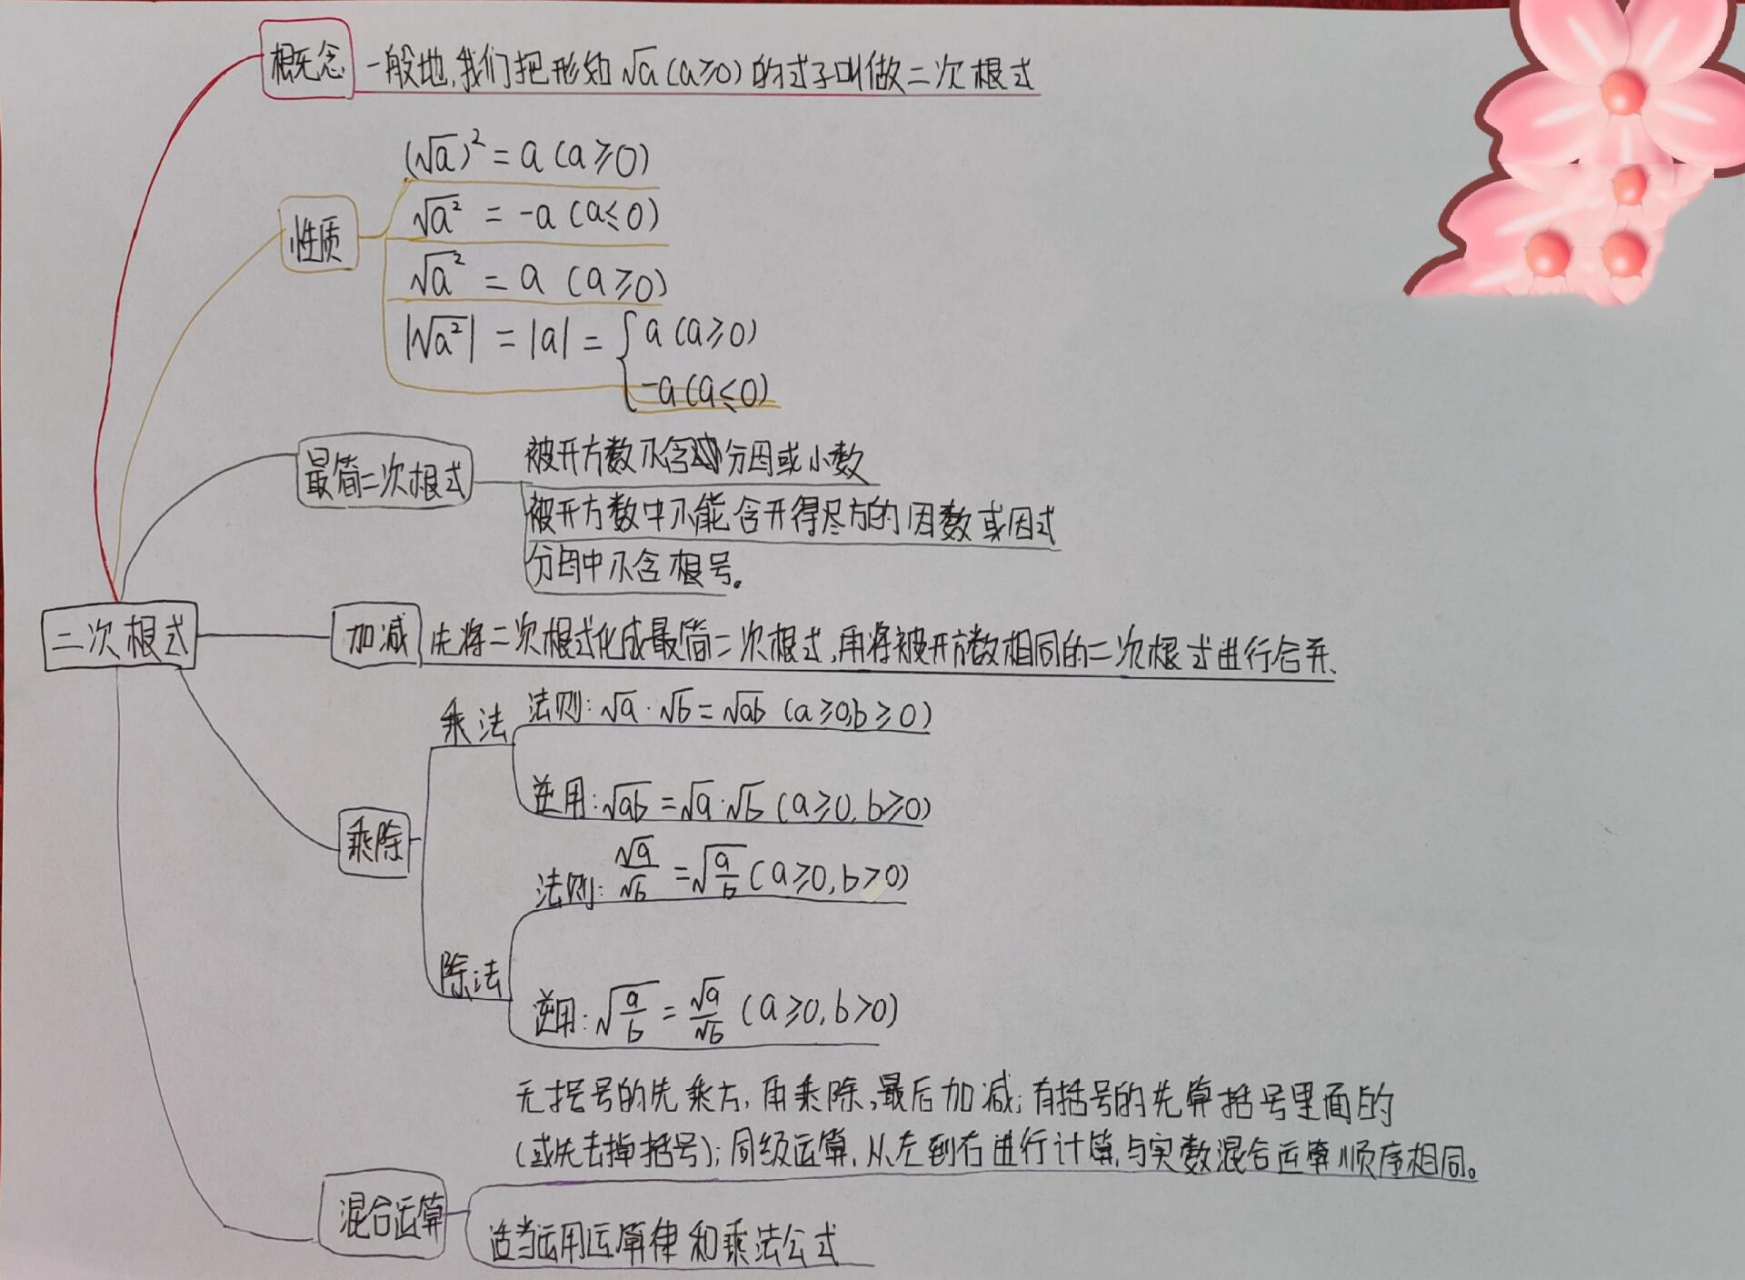 概念 一般地,我们把形如√a(a≥0)的式子叫做二次根式
性质
(√a)² = a (a≥0)
√a² = -a (a≤0)
√a² = a (a≥0)
|√a²| = |a| = { a (a≥0)
-a (a≤0)
最简二次根式
被开方数不含分因或小数
被开方数中不能含开得尽方的因数或因式
分母中不含根号。
二次根式
加减 先将二次根式化成最简二次根式,再将被开方数相同的二次根式进行合并.
乘除
乘法
法则:√a·√b=√ab (a≥0,b≥0)
逆用:√ab=√a·√b (a≥0,b≥0)
除法
法则:√a/√b=√(a/b) (a≥0,b>0)
逆用:√(a/b)=√a/√b (a≥0,b>0)
混合运算
无括号的先乘方,再乘除,最后加减;有括号的先算括号里面的
(或先去掉括号);同级运算,从左到右进行计算,与实数混合运算顺序相同。
适当运用运算律和乘法公式